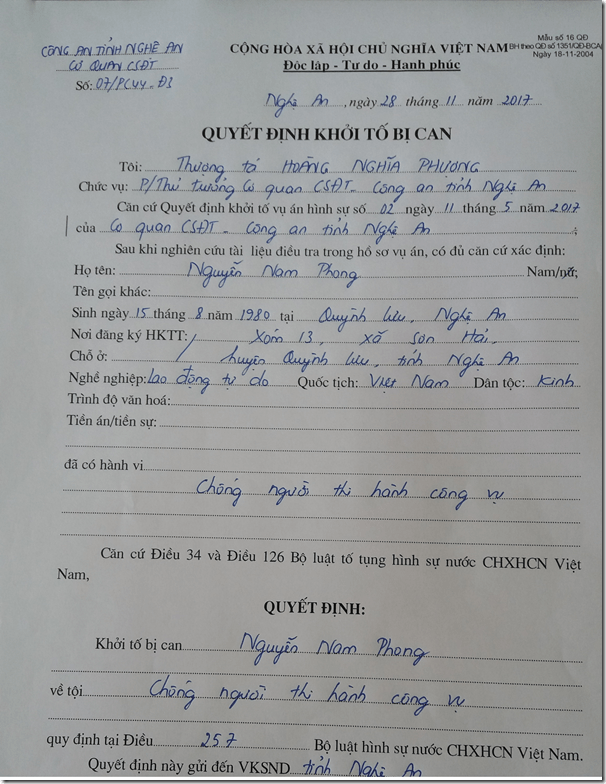 CÔNG AN TỈNH NGHỆ AN
CƠ QUAN CSĐT
Số: 07/PC44-Đ3
CỘNG HÒA XÃ HỘI CHỦ NGHĨA VIỆT NAM
Độc lập - Tự do - Hạnh phúc
Mẫu số 16 QĐ
BH theo QĐ số 1351/QĐ-BCA(
Ngày 18-11-2004
Nghệ An, ngày 28 tháng 11 năm 2017
QUYẾT ĐỊNH KHỞI TỐ BỊ CAN
Tôi: Thượng tá HOÀNG NGHĨA PHƯỢNG
Chức vụ: P/Thủ trưởng Cơ quan CSĐT - Công an tỉnh Nghệ An
Căn cứ Quyết định khởi tố vụ án hình sự số 02 ngày 11 tháng 5 năm 2017
của Cơ quan CSĐT - Công an tỉnh Nghệ An ;
Sau khi nghiên cứu tài liệu điều tra trong hồ sơ vụ án, có đủ căn cứ xác định:
Họ tên: Nguyễn Nam Phong Nam/nữ;
Tên gọi khác:
Sinh ngày 15 tháng 8 năm 1980 tại Quỳnh Lưu, Nghệ An
Nơi đăng ký HKTT: Xóm 13, xã Sơn Hải,
Chỗ ở: huyện Quỳnh Lưu, tỉnh Nghệ An
Nghề nghiệp: lao động tự do Quốc tịch: Việt Nam Dân tộc: Kinh
Trình độ văn hoá:
Tiền án/tiền sự:
đã có hành vi
Chống người thi hành công vụ
Căn cứ Điều 34 và Điều 126 Bộ luật tố tụng hình sự nước CHXHCN Việt
Nam,
QUYẾT ĐỊNH:
Khởi tố bị can Nguyễn Nam Phong
về tội Chống người thi hành công vụ
quy định tại Điều 257 Bộ luật hình sự nước CHXHCN Việt Nam.
Quyết định này gửi đến VKSND tỉnh Nghệ An